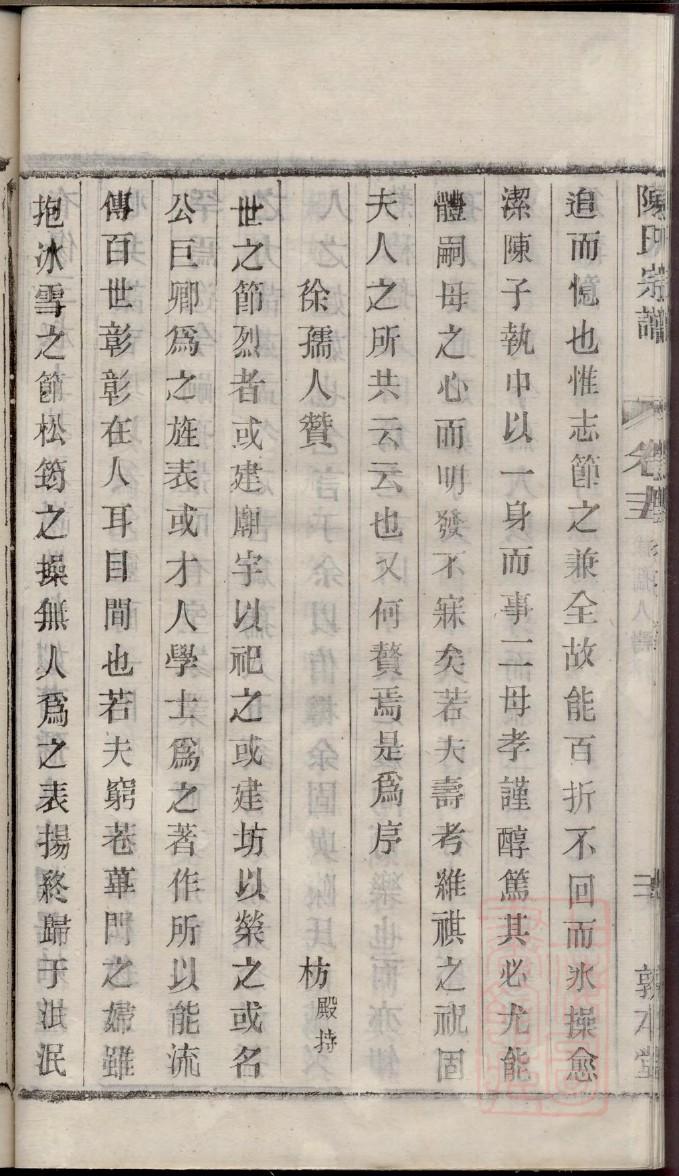 陳氏宗譜 卷 三 敦本堂
追而憶也惟志節之兼全故能百折不回而氷操愈
潔陳子執中以一身而事二母孝謹醇篤其必尤能
體嗣母之心而明發不寐矣若夫壽考維祺之祝固
夫人之所共云云也又何贅焉是爲序
徐孺人贊 枋殿持
世之節烈者或建廟宇以祀之或建坊以榮之或名
公巨卿爲之旌表或才人學士爲之著作所以能流
傳百世彰彰在人耳目間也若夫窮巷蓽門之婦雖
抱冰雪之節松筠之操無人爲之表揚終歸于泯泯